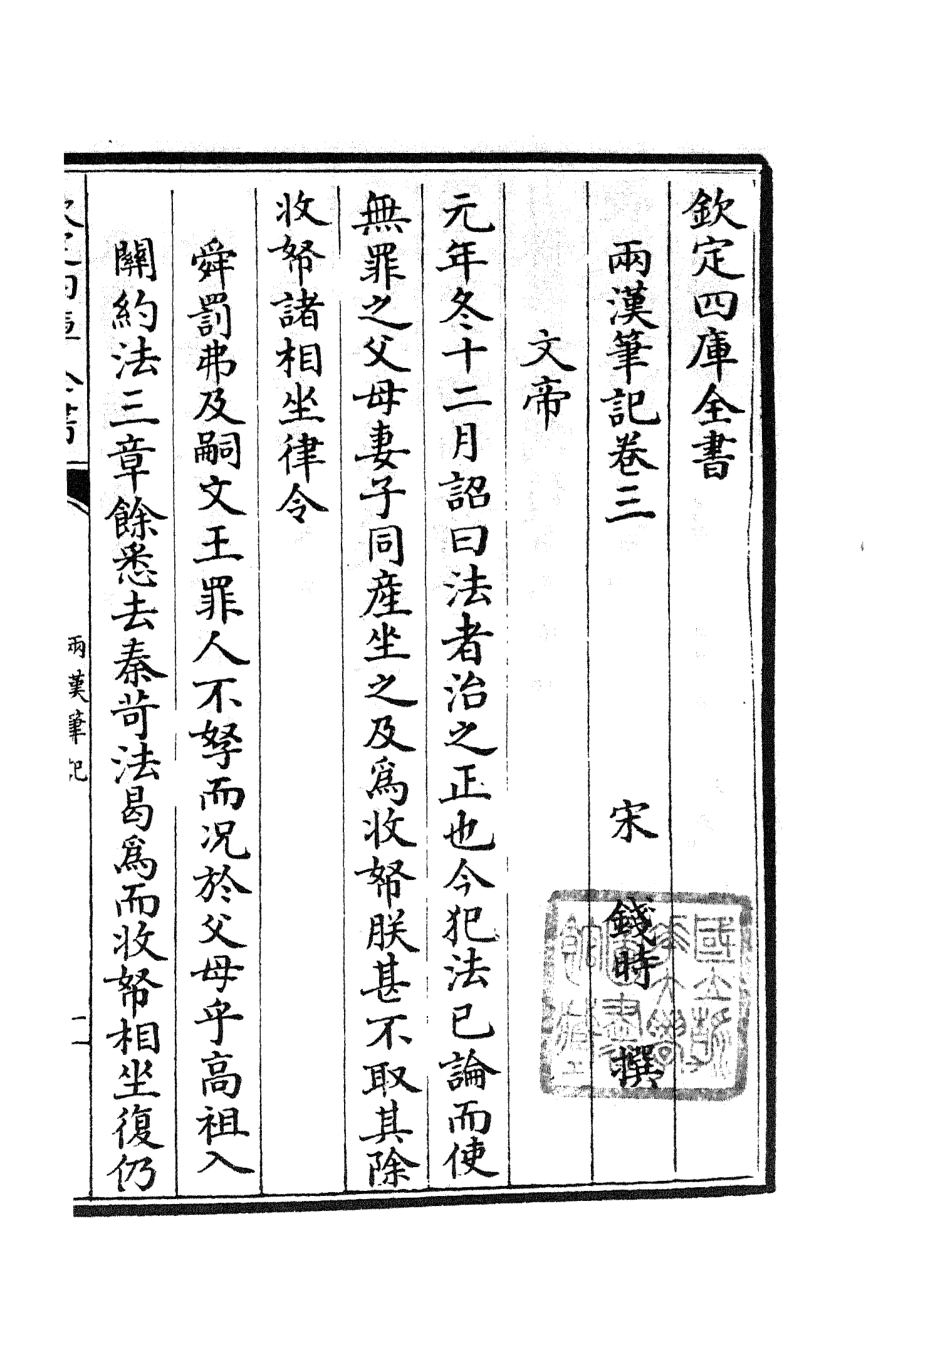 欽定四庫全書
兩漢筆記卷三　宋　錢時　撰
文帝
元年冬十二月詔曰法者治之正也今犯法已論而使
無罪之父母妻子同産坐之及爲收帑朕甚不取其除
收帑諸相坐律令
舜罰弗及嗣文王罪人不孥而况於父母乎高祖入
關約法三章餘悉去秦苛法曷爲而收帑相坐復仍
欽定四庫全書
兩漢筆記
一